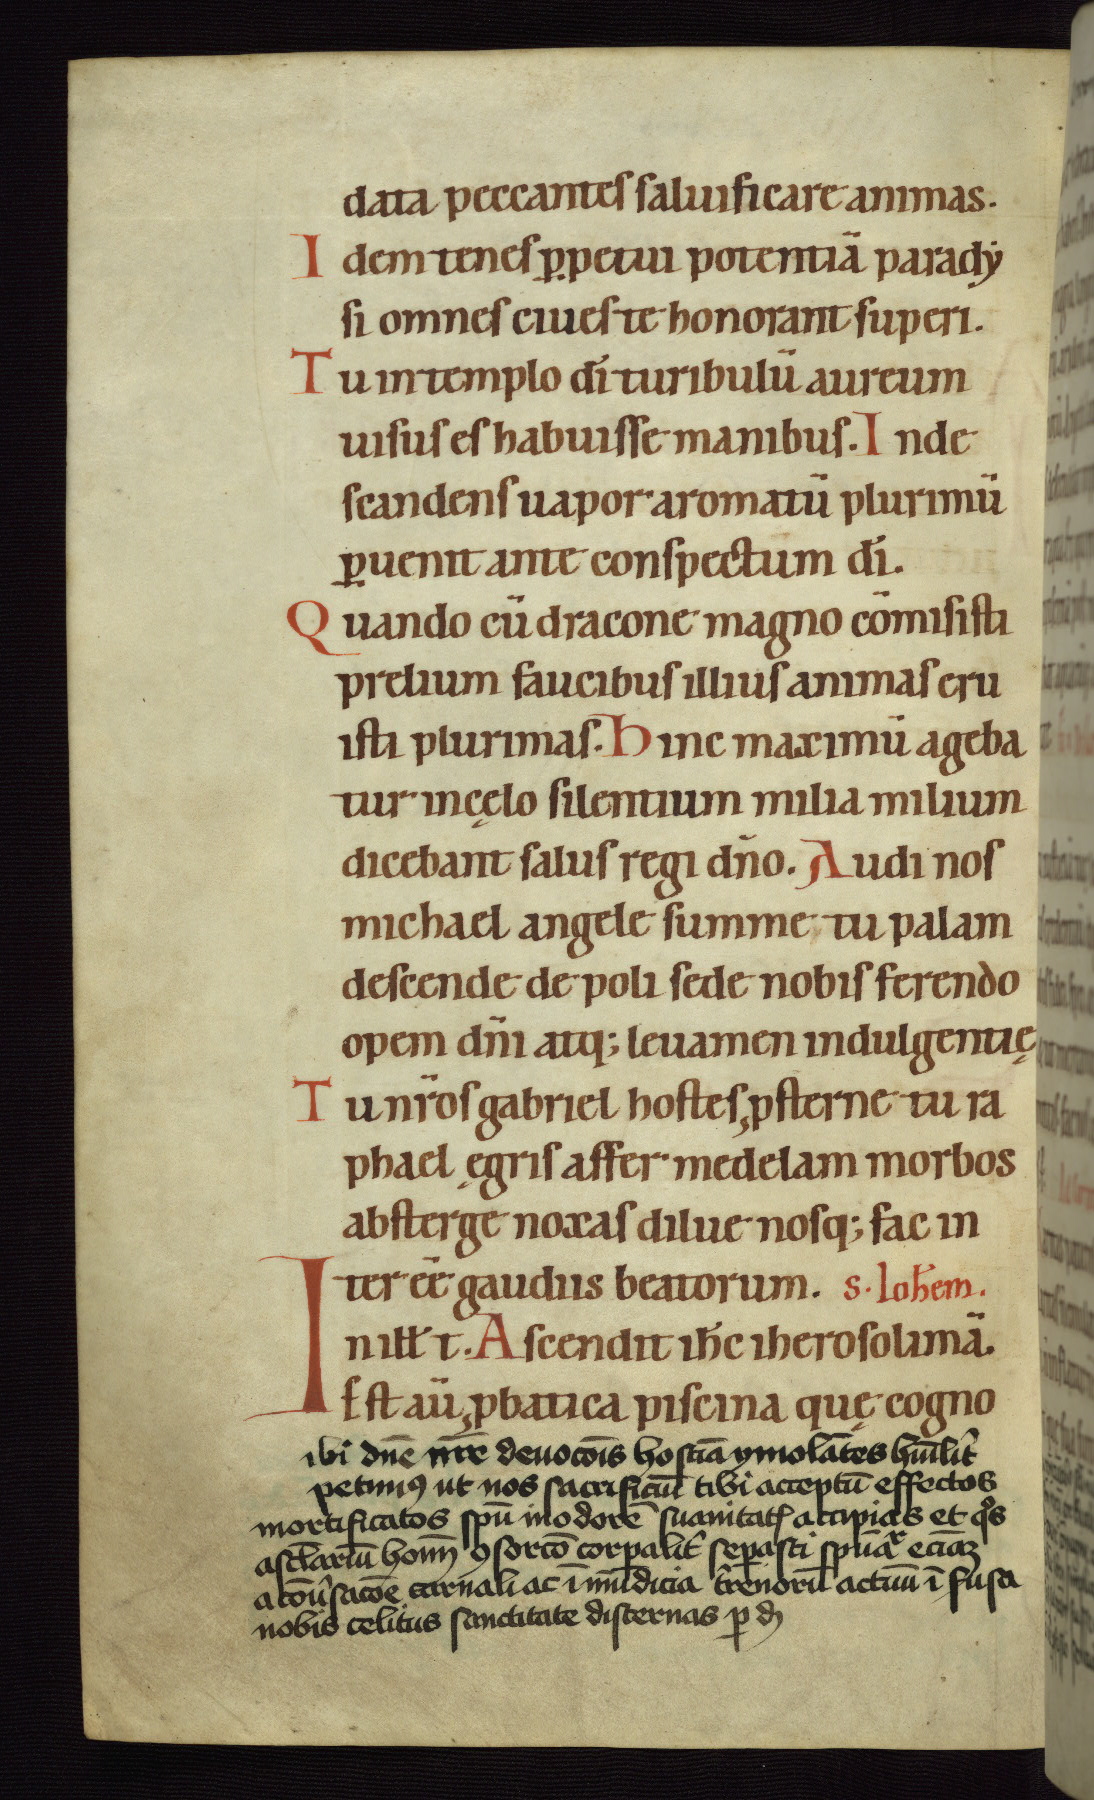 data peccantes saluificare animas.
I dem tenes ꝑpetui potentiã parady
si omnes ciues te honorant superi.
T u in templo dī turibulū aureum
uisus es habuisse manibus. I nde
scandens uapor aromatū plurimū
ꝑuenit ante conspectum dī.
Q uando cū dracone magno cōmisisti
prelium faucibus illius animas eru
isti plurimas. H inc maximū ageba
tur in cęlo silentium milia milium
dicebant salus regi dño. A udi nos
michael angele summe tu palam
descende de poli sede nobis ferendo
opem dñi atq; leuamen indulgentię
T u nr̄os gabriel hostes ꝓsterne tu ra
phael ęgris affer medelam morbos
absterge noxas dilue nosq; fac in
ter eē gaudiis beatorum. s. Ioħem.
I n ill t. A scendit iħc iherosolimã.
Est aū ꝓbatica piscina quę cogno
ibi dn̄e nr̄e deuocōis hostiā ymolātes hūilit̄
petimꝰ ut nos sacrificiū tibi acceptū effectos
mortificatos spū in odorē suauitatꝭ accipias et
honī ꝯsorcō corpalit̄ sepasti
carnali ac ī mūdicia t̄renorū actuū ī fusa
nobis celitus sanctitate discernas ꝑ dm̄